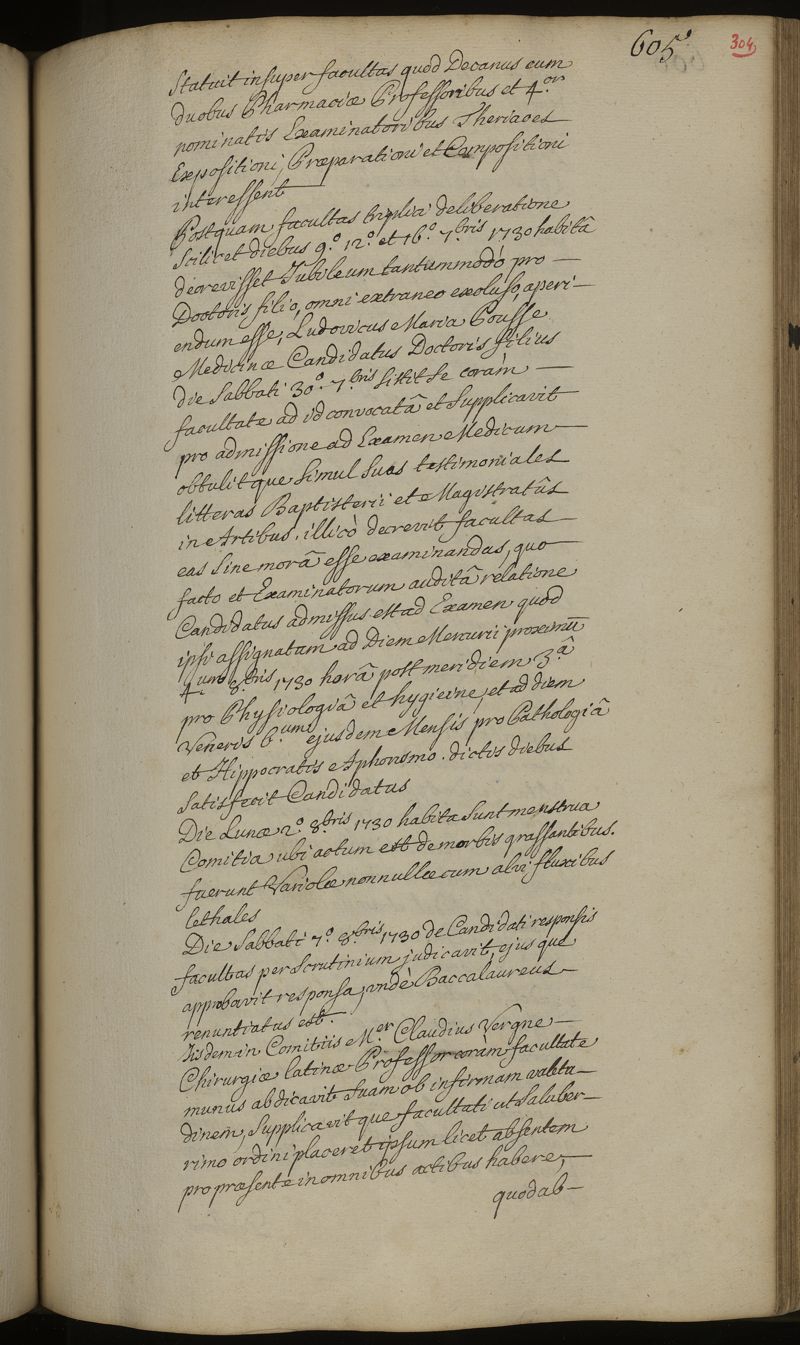 605.
304
Statuit insuper facultas quod Decanus cum
duobus Pharmaciæ Professoribus et 4.or
nominatis Examinatoribus Theriaces
Expositioni, Præparationi et Compositioni
interessent
Postquam facultas triplici deliberatione
Scilicet diebus 9.° 12.° et 16.° 7.bris 1730 habitâ
decrevisset Jubileum tantummodò pro —
Doctoris filio, omni extraneo excluso, aperi-
endum esse, Ludovicus Maria Pousse
Medicinæ Candidatus Doctoris filius
die Sabbati 30.° 7.bris Sistit se coràm —
facultate ad id convocatâ et Supplicavit
pro admissione ad Examen Medicum —
obtulitque simul Suas testimoniales
litteras Baptisterii et Magistratûs
in Artibus, illicò decrevit facultas —
eas Sine morâ esse examinandas, quo
facto et Examinatorum auditâ relatione
Candidatus admissus est ad Examen quod
ipsi assignatum ad Diem Mercurii proximũ
4.um 8.bris 1730 horâ post meridiem 3.â
pro Physiologiâ et hygieine, et ad diem
Veneris 6.um ejusdem Mensis pro Pathologiâ
et Hippocratis Aphorismo. dictis diebus
Satisfecit Candidatus
Die Lunæ 2.° 8.bris 1730 habita Sunt menstrua
Comitia ubi actum est de morbis grassantibus.
fuerunt Variolæ nonnullæ cum alvi fluxibus
lethales
Die Sabbati 7.° 8.bris 1730 de Candidati responsis
facultas per Scrutinium judicavit, ejusque
approbavit responsa, undè Baccalaureus —
renuntiatus est.
Iisdem in Comitiis M.er Claudius Vergne —
Chirurgiæ latinæ Professor coràm facultate
munus abdicavit Suam ob infirmam valetu-
dinem, Supplicavitque facultati ut Saluber-
rimo ordini placeret ipsum licet absentem
pro præsente in omnibus actibus habere, —
quod ab —